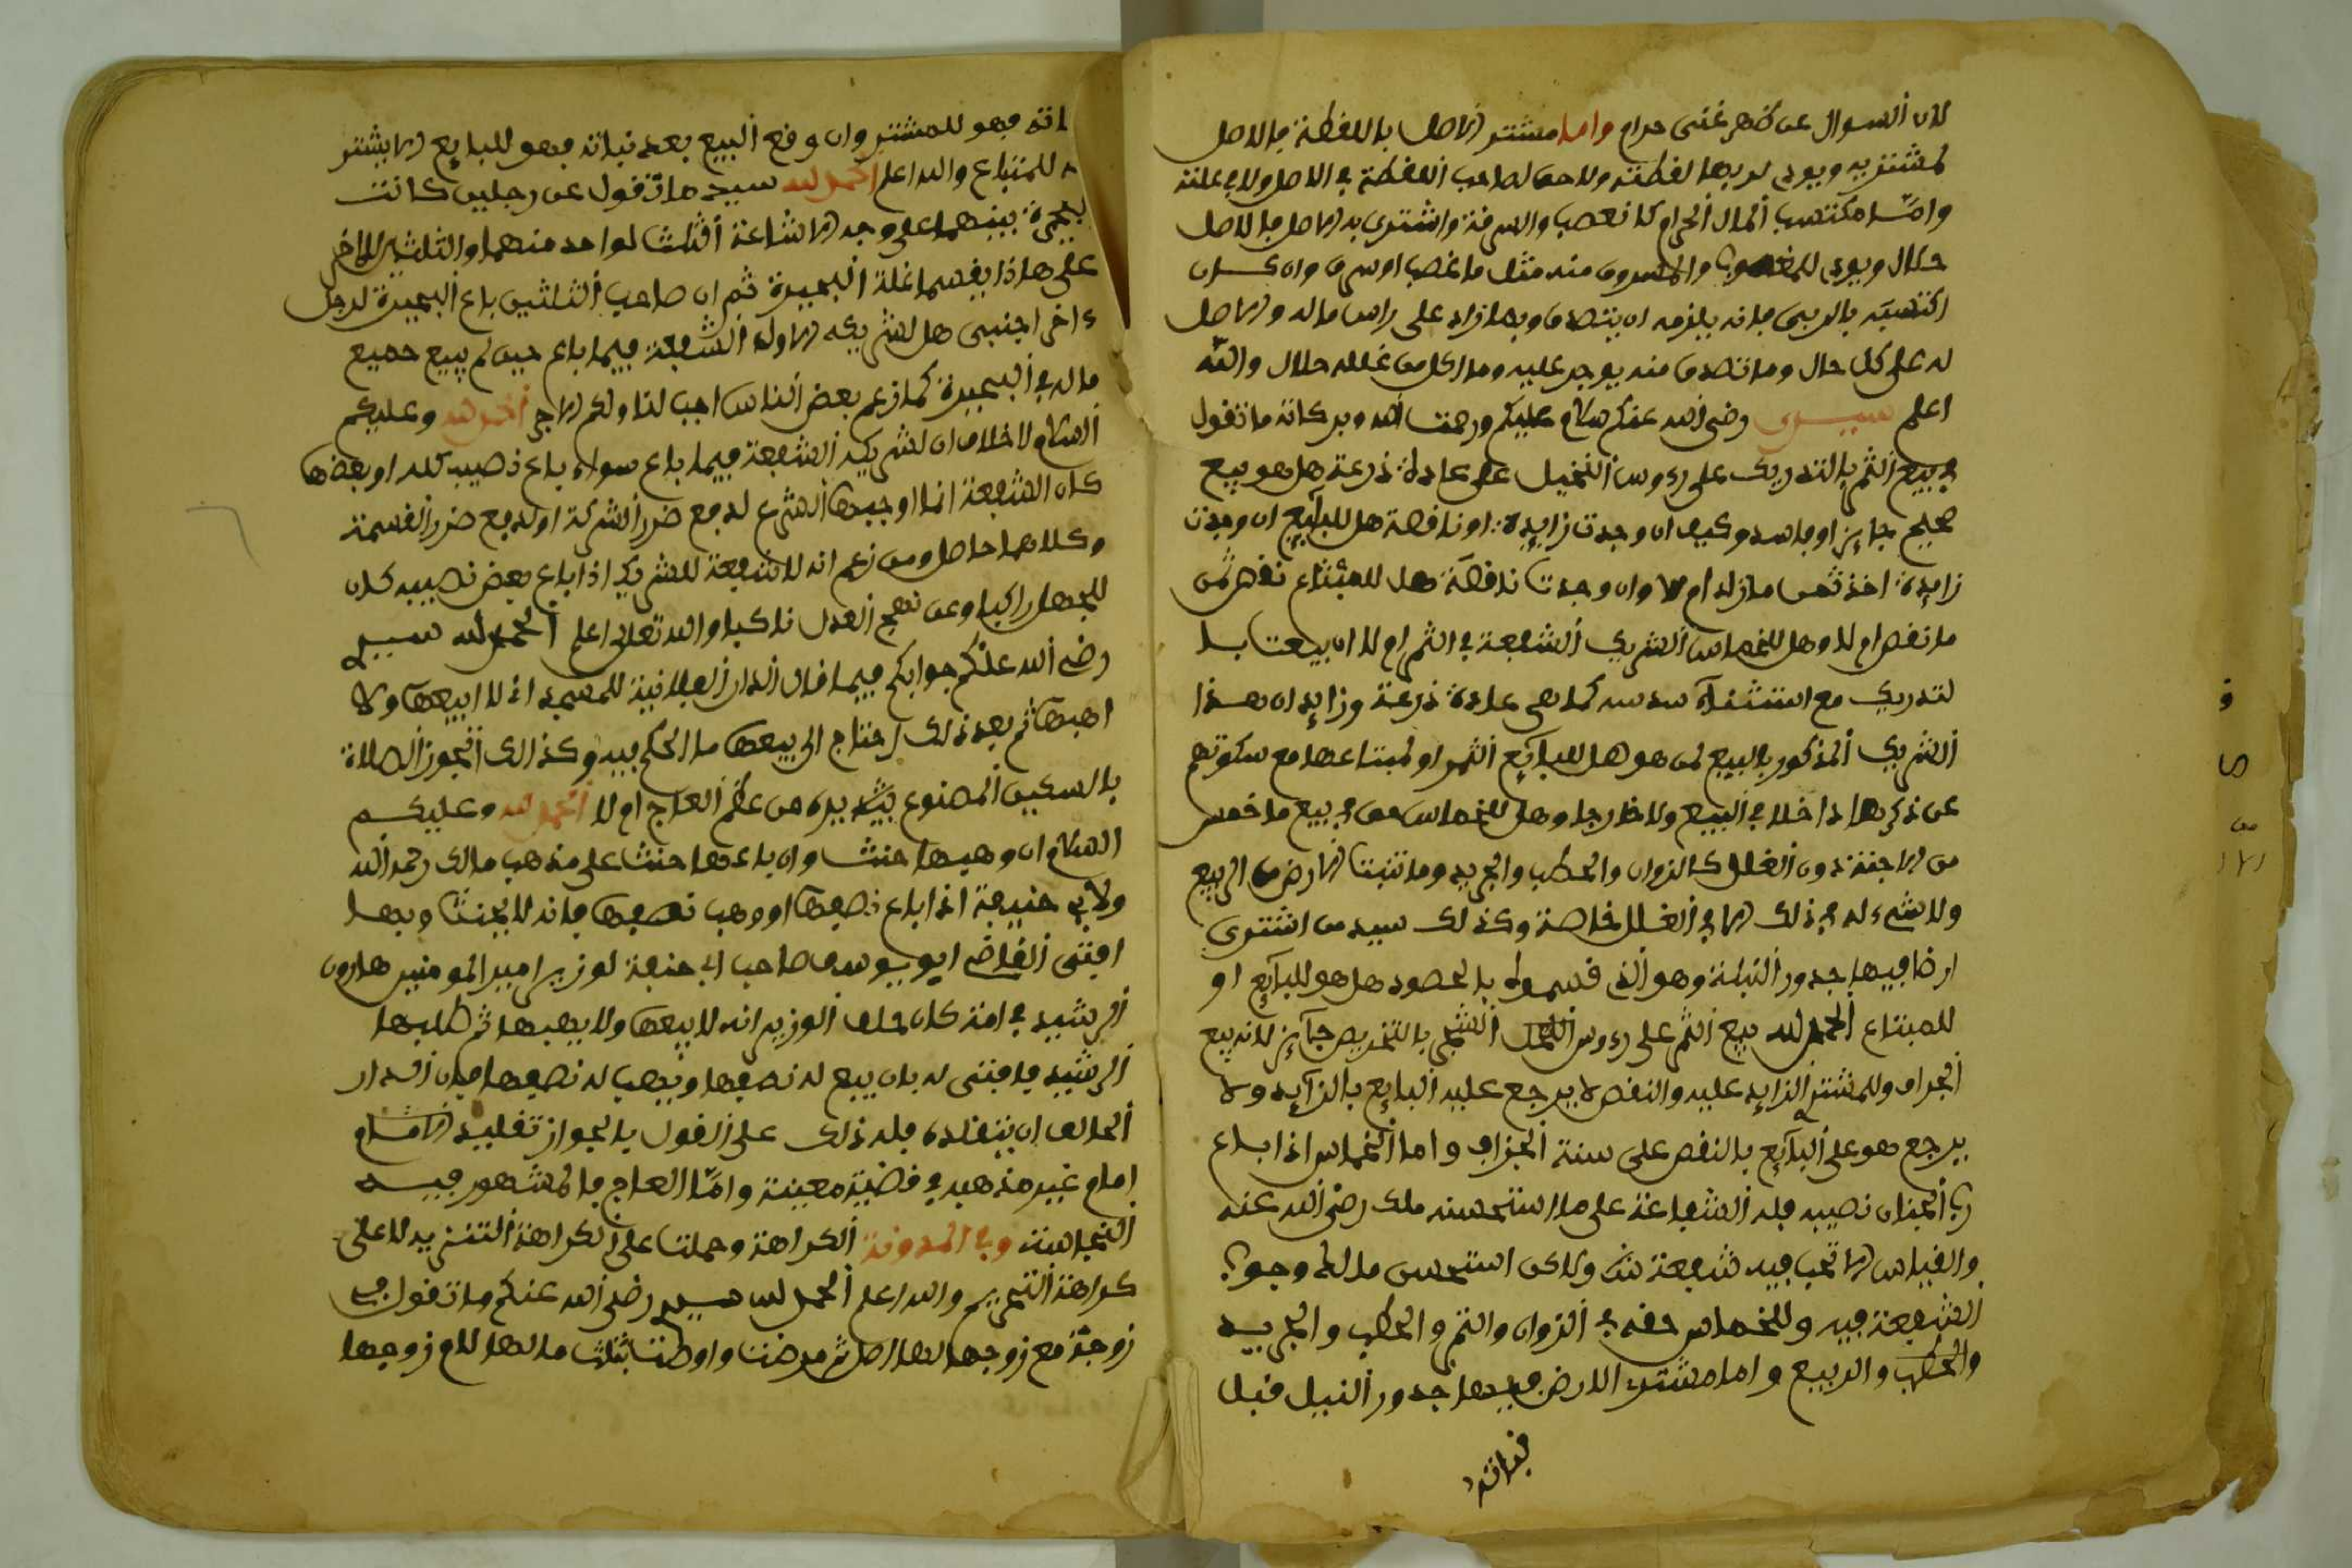 لان السوال عن ظهر غنى حرام واما مشتر الاصل باللفطة فالاصل
لمشتريه ويودي لربها لفطته ولا حق لصاحب اللفطة في الاصل ولا في غلته
وامّا مكتسب المال الحرام كالغصب والسرفة واشترى به الاصل فالاصل
حلال ويودي للمغصوب والمسروق منه مثل ما غصب او سرق وان كان
اكتسبه بالربى فانه يلزمه ان يتصدق وبما زاد على راس ماله والاصل
له على كل حال وما تصدق منه يوجر عليه وما اكل من غلله حلال والله
اعلم سيدي رضي الله عنكم سلام عليكم ورحمت الله وبركاته ما تقول
في بيع الثمر بالتدريك على رءوس النخيل على عادة ذرعة هل هو بيع
صحيح جايز او فاسد وكيف ان وجدت زايدة او نافصة هل للبايع ان وجدت
زايدة اخذ ثمن ما زاد ام لا وان وجدت نافصة هل للمبتاع نفص ثمن
ما نفص ام لا وهل للخماس الشريك الشفعة في الثمر ام لا ان بيعت با
لتدريك مع استثناء سدسه كما هي عادة ذرعة وزايد ان هذا
الشريك المذكور بالبيع لمن هو هل للبايع الثمر او لمبتاعها مع سكوتهم
عن ذكرها داخلا في البيع ولا خارجا وهل للخماس حق في بيع ما خمس
من الاجنة دون الغلل كالزوان والحطب والجريد وما تنبت الارض من الربيع
ولا شيء له في ذلك الا في الغلل خاصة وكذلك سيد من اشترى
ارضا فيها جدور النيلة وهو الذي فسموه بالحصود هل هو للبايع او
للمبتاع الحمد لله بيع الثمر على رءوس النخل الشجر بالتخريص جآيز لانه بيع
الجراف وللمشتر الزايد عليه والنفص لا يرجع عليه البايع بالزآيد ولا
يرجع هو على البآيع بالنفص على سنة الجزاف واما الخماس اذا باع
رب الجنان نصيبه فله الشفاعة على ما استحسنه ملك رضي الله عنه
والفياس الا تجب فيه شفعة ولاكن استحسن مالك وجوب
الشفعة فيه وللخماس حفه في الزوان والثمر والحطب والجريد
والحطب والربيع واما مشترى الارض فيها جدور النيل فبل
نباته
اته فهو للمشتر وان وفع البيع بعد نباته فهو للبايع الا بشتر
ه للمبتاع والله اعلم الحمد لله سيد ما تفول عن رجلين كانت
بحيرة بينهما على وجه الاشاعة اثلاثا لواحد منهما والثلثين للاخر
على هاذا يفسما غلة البحيرة ثم ان صاحب الثلثين باع البحيرة لرجل
ءاخر اجنبي هل لشريكه الاول الشفعة فيما باع حين لم يبيع جميع
ماله في البحيرة كما زعم بعض الناس اجب لنا ولكم الاجر الحمد لله وعليكم
السلام لا خلاف ان لشريكه الشفعة فيما باع سواء باع نصيبه كله او بعضها
كان الشفعة انما اوجبها الشرع لدفع ضرر الشركة او لدفع ضرر الفسمة
وكلاهما حاصل ومن زعم انه لا شفعة للشريك اذا باع بعض نصيبه كان
للجهل راكبا وعن نهج العدل ناكبا والله تعلى اعلم الحمد لله سيدي
رضي الله عنكم جوابكم فيما فال الدار الفلانية للمسجد اني لا ابيعها ولا
اهبها ثم بعد ذلك احتاج الى بيعها ما الحكم فيه وكذالك اتجوز الصلاة
بالسكين المصنوع يده من عظم العاج ام لا الحمد لله وعليكم
السلام ان وهبها حنث وان باعها حنث على مذهب مالك رحمه الله
ولابي حنيفة اذا باع نصفها او وهب نصفها فانه لا يحنث وبهذا
افتى الفاضي ابو يوسف صاحب ابي حنيفة لوزير امير المومنين هارون
الرشيد في امة كان حلف الوزير انه لا يبيعها ولا يهبها ثم طلبها
الرشيد فافتى له بان يبيع له نصفها ويهب له نصفها فان اراد
الحالف ان يتقلده فله ذلك على الفول بالجواز تفليد الامام
امام غير مذهبه في فضية معينة وامّا العاج فالمشهور فيه
النجاسة وفي المدونة الكراهة وحملت على الكراهة التنزيه لا على
كراهة التحريم والله اعلم الحمد لله سيدي رضي الله عنكم ما تفول في
زوجة مع زوجها لها اصل ثم مرضت واوصت بثلث مالها لام زوجها